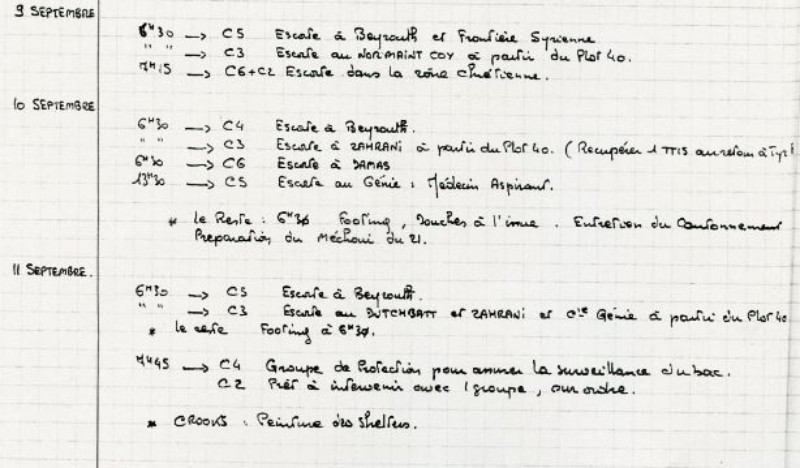 9 SEPTEMBRE
6H30 → C5 Escorte à Beyrouth et Frontière Syrienne
" " → C3 Escorte au NORMAINT COY à partir du Plot 40.
7H15 → C6+C2 Escorte dans la zone chrétienne.
10 SEPTEMBRE
6H30 → C4 Escorte à Beyrouth.
" " → C3 Escorte à ZAHRANI à partir du Plot 40. (Recupérer 1 TTIS au retour à Tyr)
6H30 → C6 Escorte à DAMAS
13H30 → C5 Escorte au Génie : Médecin Aspirant.
* le Reste : 6H30 Footing, Douches à l'issue. Entretien du Cantonnement
Preparation du Méchoui du 21.
11 SEPTEMBRE.
6H30 → C5 Escorte à Beyrouth.
" " → C3 Escorte au DUTCHBATT et ZAHRANI et Cie Génie à partir du Plot 40
* le reste Footing à 6H30.
7H45 → C4 Groupe de Protection pour assurer la surveillance du bac.
C2 Prêt à intervenir avec 1 groupe, sur ordre.
* CROOKS : Peinture des Shelters.